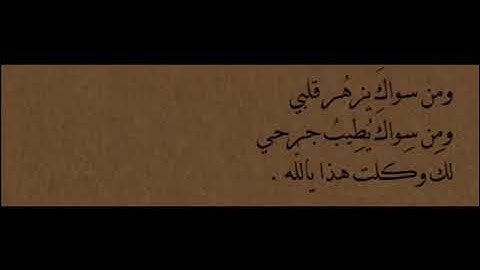 ومن سواكَ يزهُر قلبي
ومِن سِواك يُطِيبُ جرحي
لك وكلت هذا يالله .